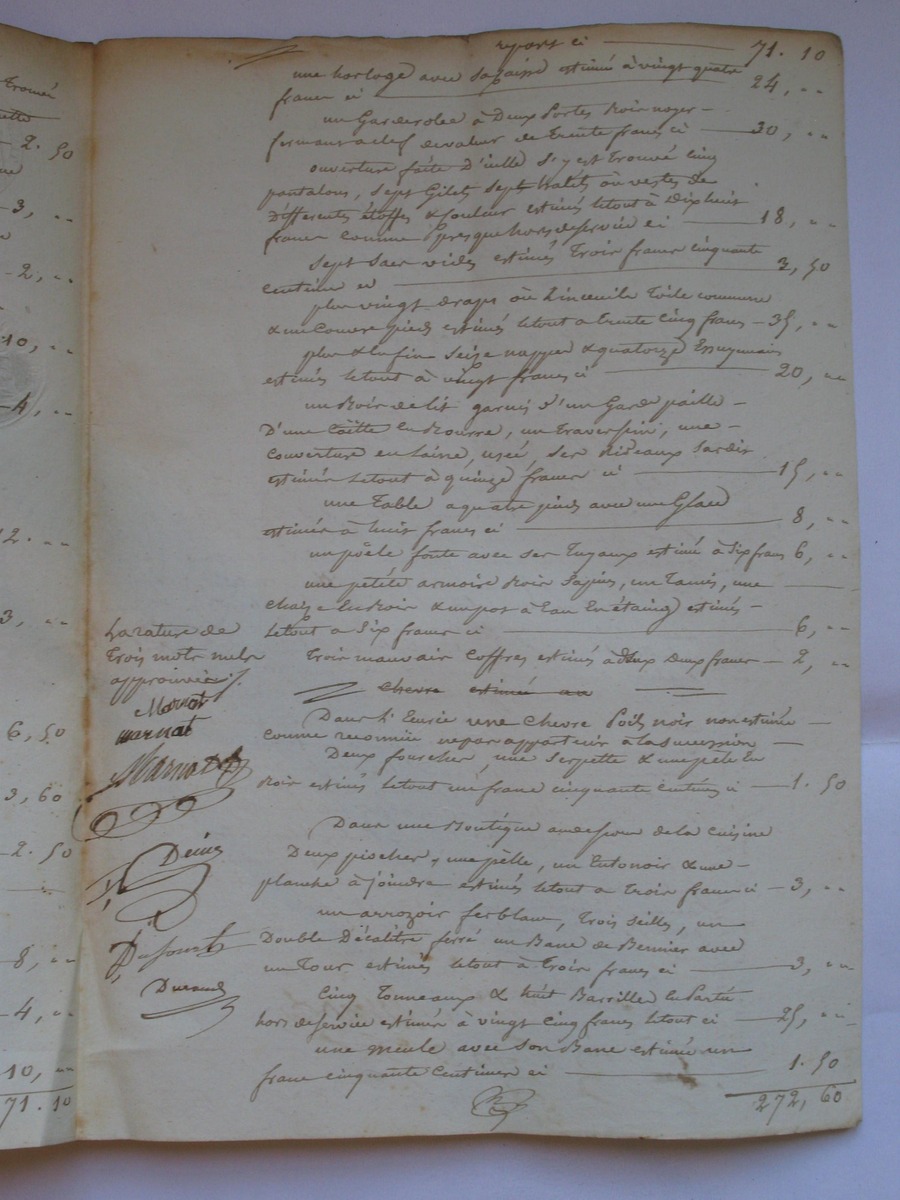 Trouvé
2. 50
3, "
2, "
10, "
4, "
12. "
3, "
6, 50
3, 60
2. 50
8, "
4, "
10, "
71. 10
report ci 71. 10
une horloge avec sa caisse estimé à vingt quatre
francs ci 24, "
un Garderobe à Deux Portes Bois noyer
fermant a clef de valeur de trente francs ci 30, "
ouverture faite d'icelle s'y est trouvé cinq
pantalons, sept Gilets sept habits ou vestes de
Différentes étoffes & couleur estimés letout à Dix huit
francs comme presque hors de service ci 18, "
sept sacs vides estimés trois francs cinquante
centimes ci 3, 50
plus vingt draps ou Linceuils Toile commune
& un Couvre pieds estimés letout a trente cinq francs 35, "
plus & enfin seize nappes & quatorze Essuymains
estimés letout à vingt francs ci 20, "
un Bois de lit garnis d'un Garde paille
D'une Coëtte en Bourre, un traversin, une
Couverture en laine, usée, ses Rideaux
estimés letout à quinze francs ci 15, "
une Table a quatre pieds avec une Glace
estimés à huit francs ci 8, "
un poêle fonte avec ses Tuyaux estimé à Six francs 6, "
une petite armoire Bois Sapin, un Tamis, une
chaise en Bois & un pot à Eau en étaing estimés
letout a Six francs ci 6, "
Trois mauvais Coffres estimés à Deux francs 2, "
chevre estimée
Dans l'Ecurie une chevre Poils noir non estimée
comme reconnue ne pas appartenir à la succession
Deux fourches, une serpette & une pèle en
Bois estimés letout un franc cinquante centimes ci 1. 50
Dans une Boutique au dessous de la cuisine
Deux pioches, une pèlle, un Entonoir & une
planche à joindre estimés letout a trois francs ci 3, "
un arrozoir ferblanc, trois seilles, un
Double Décalitre ferré un Banc de Bennier avec
un Tour estimés letout à trois francs ci 3, "
Cinq Tonneaux & huit Barrills en partie
hors de service estimés à vingt cinq francs letout ci 25, "
une meule avec son Banc estimée un
franc cinquante Centimes ci 1. 50
272, 60
La rature de
trois mots nuls
approuvée
Marnat
Marnat
Marnat
Dufour
Durand